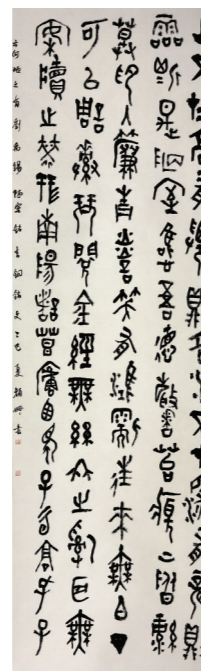 靈斯是陋室惟吾德馨苔痕上階綠
草色入簾青談笑有鴻儒往來無白丁
可以調素琴閱金經無絲竹之亂耳無
案牘之勞形南陽諸葛廬西蜀子雲亭孔子
云何陋之有 劉禹錫 陋室銘 乙巳 夏 書